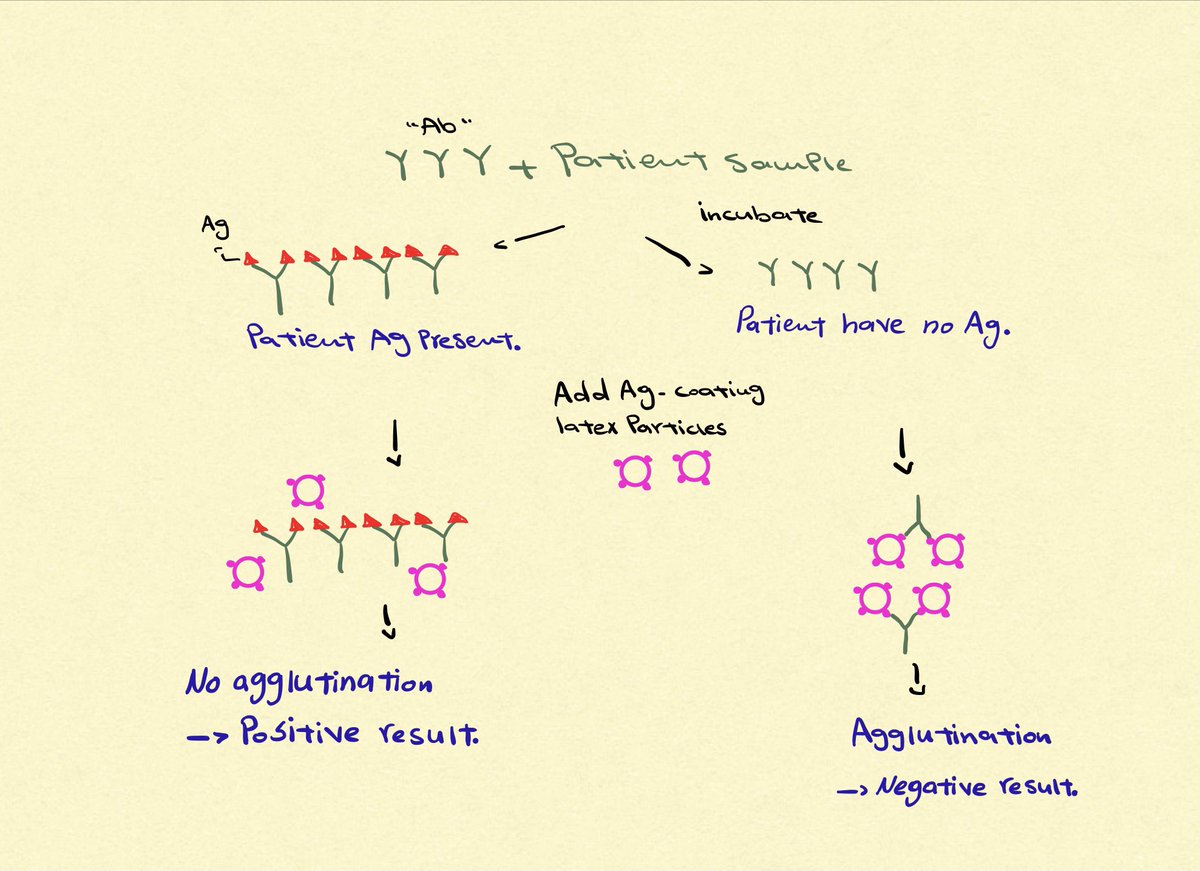 "Ab"
YYY + Patient sample
incubate
Ag
Patient Ag Present.
Patient have no Ag.
Add Ag-coating
latex Particles
No agglutination
→ Positive result.
Agglutination
→ Negative result.